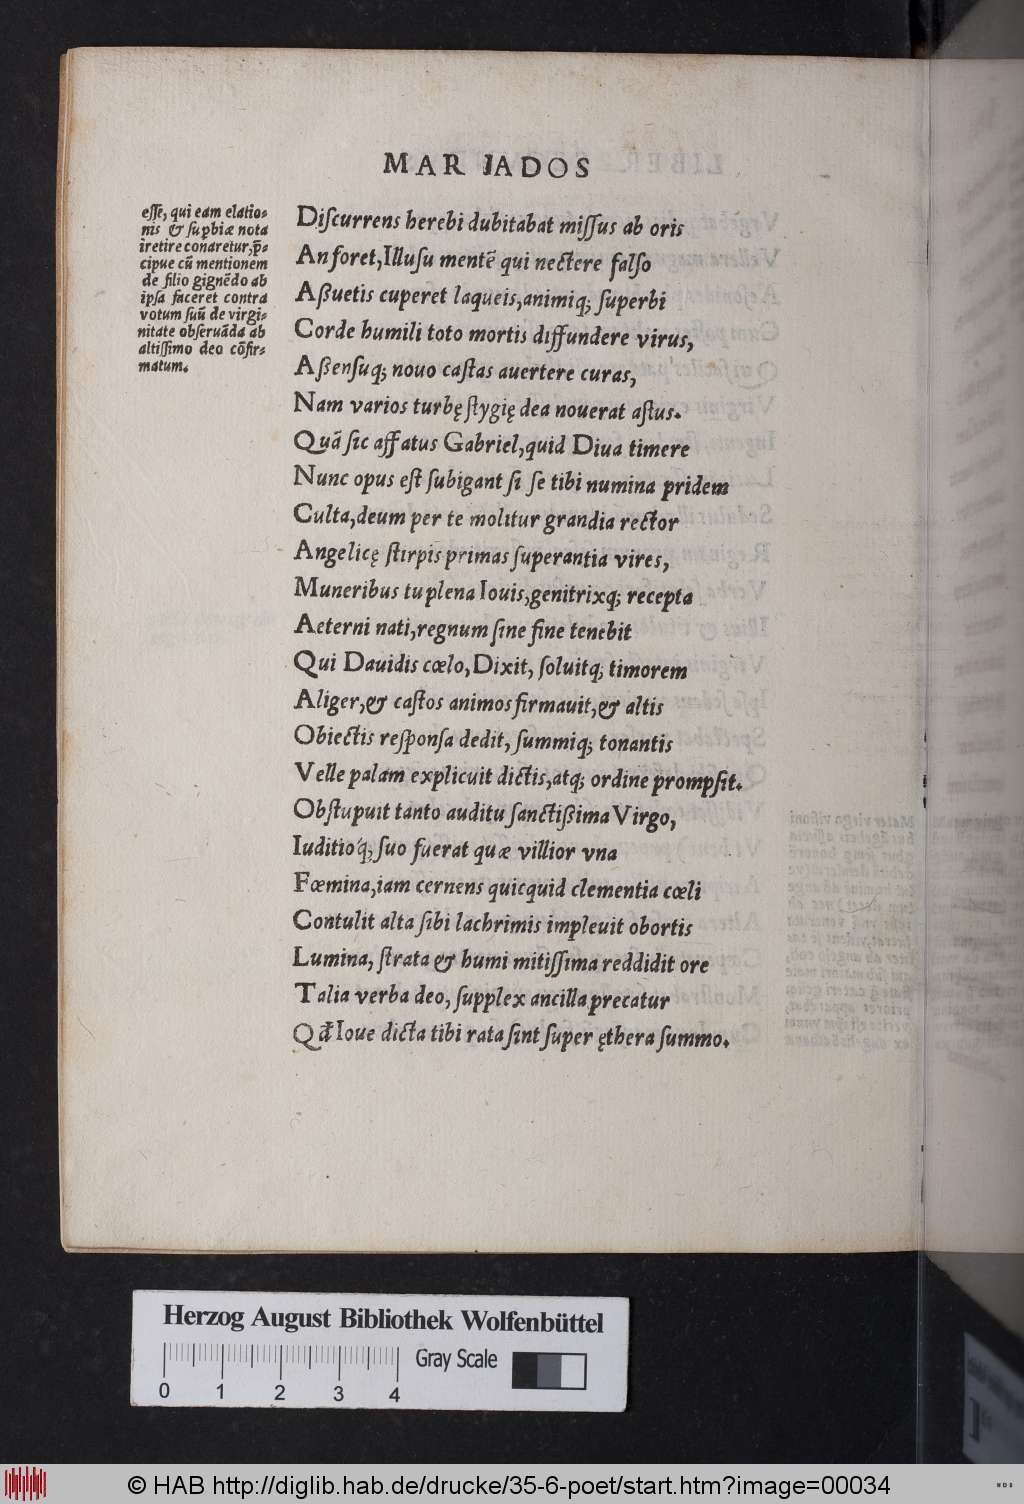 MARIADOS
eſſe, qui eam elatio-
nis & ſupbiæ nota
iretire conaretur, p̄-
cipue cũ mentionem
de filio gignẽdo ab
ipſa faceret contra
votum ſuũ de virgi-
nitate obſeruãda ab
altiſſimo deo cõfir-
matum.
Diſcurrens herebi dubitabat miſſus ab oris
An foret, Illuſu mentẽ qui nectere falſo
Aſſuetis cuperet laqueis, animiq; ſuperbi
Corde humili toto mortis diffundere virus,
Aſſenſuq; nouo caſtas auertere curas,
Nam varios turbę ſtygię dea nouerat aſtus.
Quã ſic affatus Gabriel, quid Diua timere
Nunc opus eſt ſubigant ſi ſe tibi numina pridem
Culta, deum per te molitur grandia rector
Angelicę ſtirpis primas ſuperantia vires,
Muneribus tu plena Iouis, genitrixq; recepta
Aeterni nati, regnum ſine fine tenebit
Qui Dauidis cœlo, Dixit, ſoluitq; timorem
Aliger, & caſtos animos firmauit, & altis
Obiectis reſponſa dedit, ſummiq; tonantis
Velle palam explicuit dictis, atq; ordine prompſit.
Obſtupuit tanto auditu ſanctiſſima Virgo,
Iuditioq́; ſuo fuerat quæ villior vna
Fœmina, iam cernens quicquid clementia cœli
Contulit alta ſibi lachrimis impleuit obortis
Lumina, ſtrata & humi mitiſſima reddidit ore
Talia verba deo, ſupplex ancilla precatur
Qđ Ioue dicta tibi rata ſint ſuper ęthera ſummo.
Herzog August Bibliothek Wolfenbüttel
Gray Scale
0 1 2 3 4
© HAB http://diglib.hab.de/drucke/35-6-poet/start.htm?image=00034